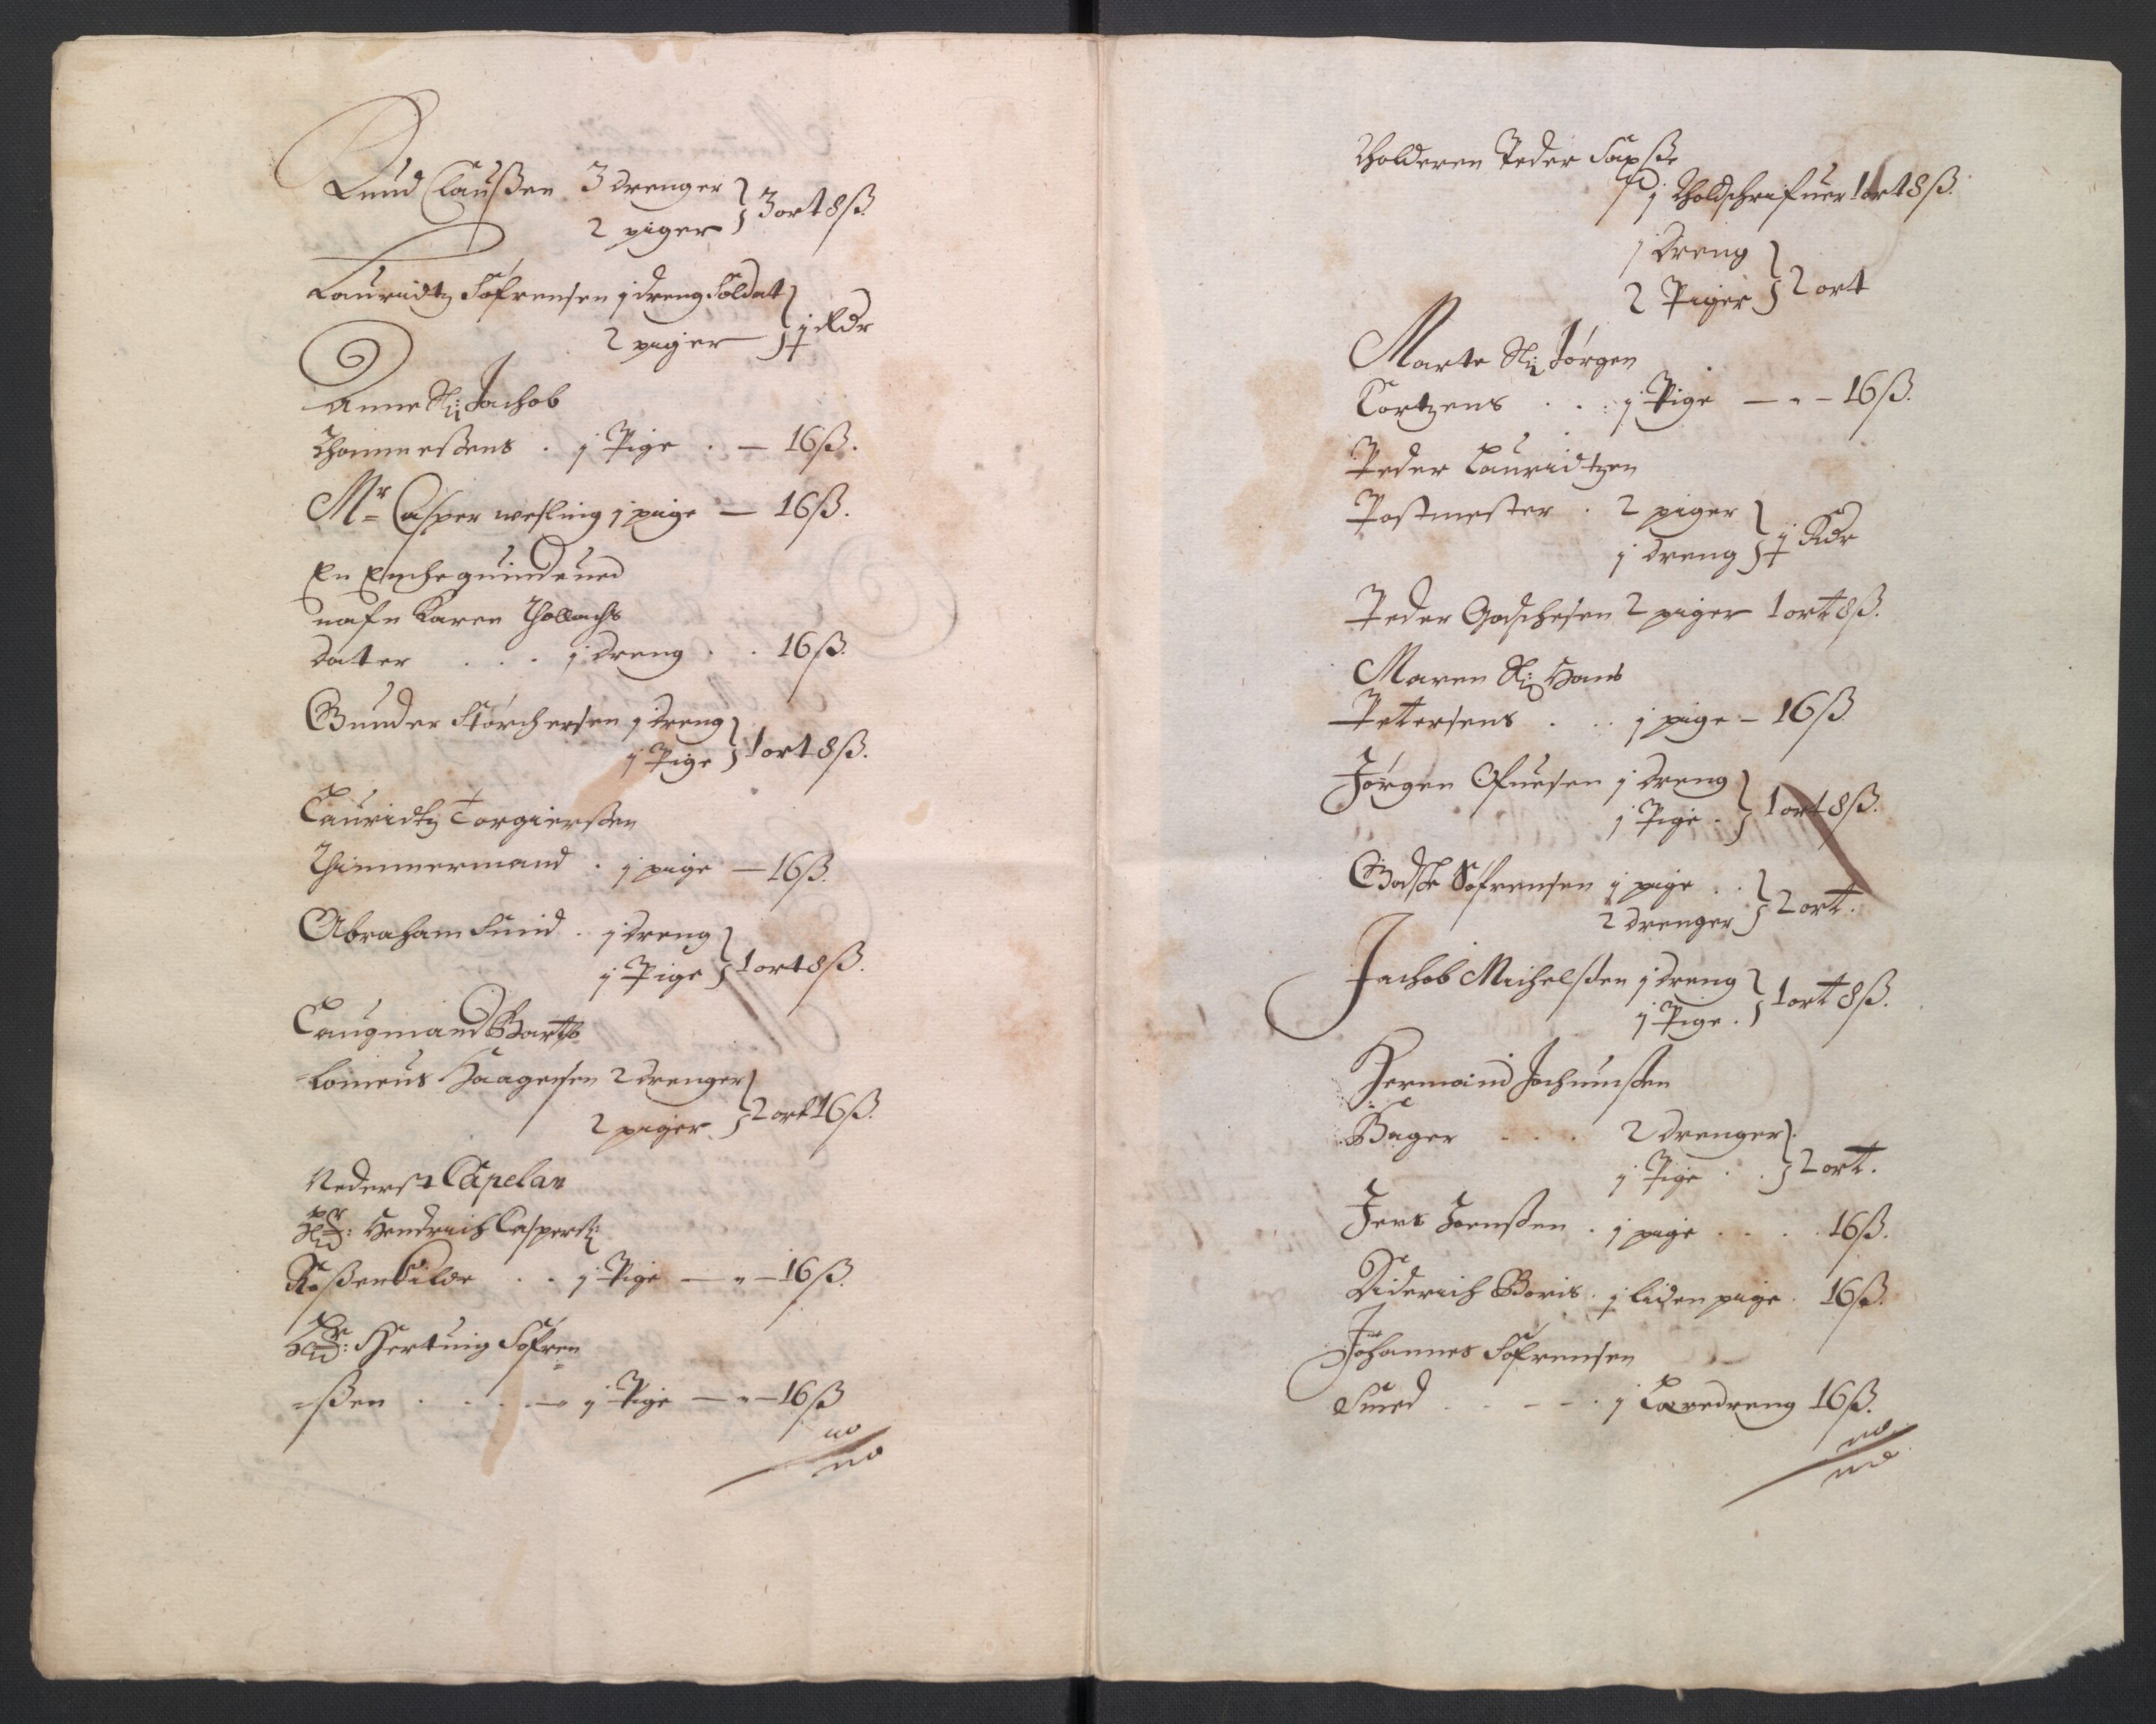 Knud Claußen 3 drenger
2 piger } 3 ort 8 ß.
Lauridtz Søfrensen j dreng Soldat
2 piger } j Rdr
Anne Sl: Jachob
Thommeßens . j Pige . — 16 ß.
Mr Casper wesling j pige — 16 ß.
En Enche quinde ved
nafn Karen Thollachs
dater . . . j dreng . . 16 ß.
Gunder Størchersen j dreng
j Pige } 1 ort 8 ß.
Lauridtz Torgierßen
Thimmermand . j pige — 16 ß.
Abraham Lund . j dreng
j Pige } 1 ort 8 ß.
Laugmand Barth
lomeus Haagensen 2 drenger
2 piger } 2 ort 16 ß.
Nederst Capelan
Hr: Hendrich Caspers:
Roßenkilde . . j Pige — " — 16 ß.
Hr: Hertuig Søfren
=ßen . . . . j Pige — " — 16 ß
Tholderen Peder
j Tholdschrifuer 1 ort 8 ß.
j Dreng
2 Piger } 2 ort
Marte Sl: Jørgen
Cortzens . . : j Pige — " — 16 ß.
Peder Lauridtzen
Postmester . 2 piger
j dreng } j Rdr
Peder Godschesen 2 piger 1 ort 8 ß.
Maren Sl: Hans
Petersens . . . j pige — 16 ß
Jørgen Ofuesen j dreng
j Pige . } 1 ort 8 ß.
Godske Søfrensen j pige . .
2 drenger } 2 ort.
Jachob Michelsen j dreng
j Pige . } 1 ort 8 ß.
Hermand Jochumßen
Bager . . . 2 drenger
j Pige . . } 2 ort.
Jens Jenßen . j pige . . . . 16 ß.
Diderich Boris . j liden pige . 16 ß.
Johannes Søfrensen
Smed . . — — . j Læredreng 16 ß.